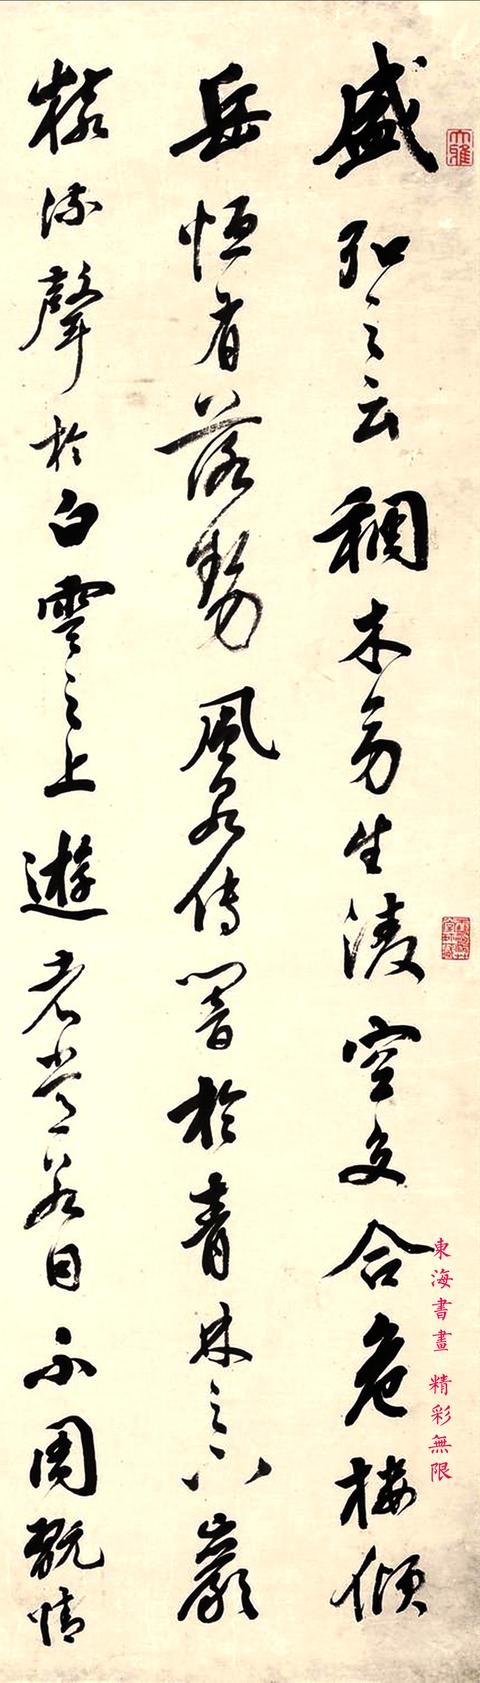 盛弘之云稠木旁生淩空交合危樓傾
岳恒有落勢風泉傳響於青林之下巖
猿流聲於白雲之上遊者常若目不周翫情
大雅
東海書畫 精彩無限